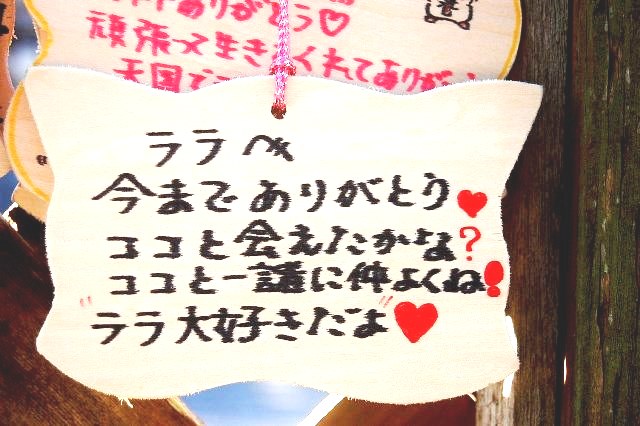 ありがとう♡
頑張って生きてくれてありが
天国で
ララへ
今までありがとう♥
ココと会えたかな?
ココと一諸に仲よくね!
"ララ大好きだよ"♥